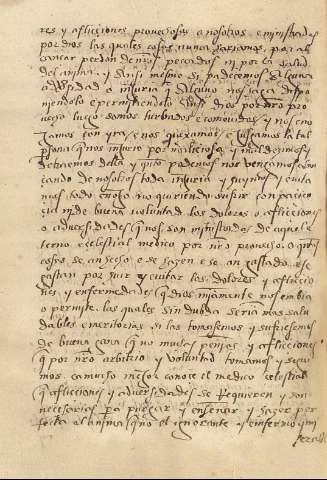 res y aflicciones provechosas a nosotros e ministradas
por dios las quales cosas nunca hariamos por al
cançar perdon de nros pecados ni por la salud
del anima y Assi mesmo si padecemos alguna
adversidad o injuria q Alguno nos haga dispo
niendolo e permitiendolo Assi dios por nro pro
vecho luego somos turbados e comovidos y nos eno
Jamos con yra e nos quexamos e culpamos la tal
psona q nos injurio por maliciosa y mal
dezimos della y quando podemos nos vengamos
çando de nosotros toda injuria y
mas todo enojo no queriendo sufrir con pacien
cia ni de buena voluntad los dolores o aflicciones
o adversidades q nos son ministradas de aquel e
terno celestial medico por nro provecho O quantas
cosas se an hecho e se hazen e se an gastado e se
gastan por huir y evitar los dolores y afliccio
nes y enfermedades q dios justamente nos embia
o permite las quales sin dubda serian mas salu
dables e meritorias si las tomasemos y sufriesemos
de buena gana que no muchas penas y aflicciones
q por nro arbitrio y voluntad tomamos y segui
mos. ca mucho mejor conoce el medico celestial
q aflicciones y adversidades se Requieren y son
necesarias pa purgar y enseñar y hazer per
fecta al anima q no el ignorante y enfermo que